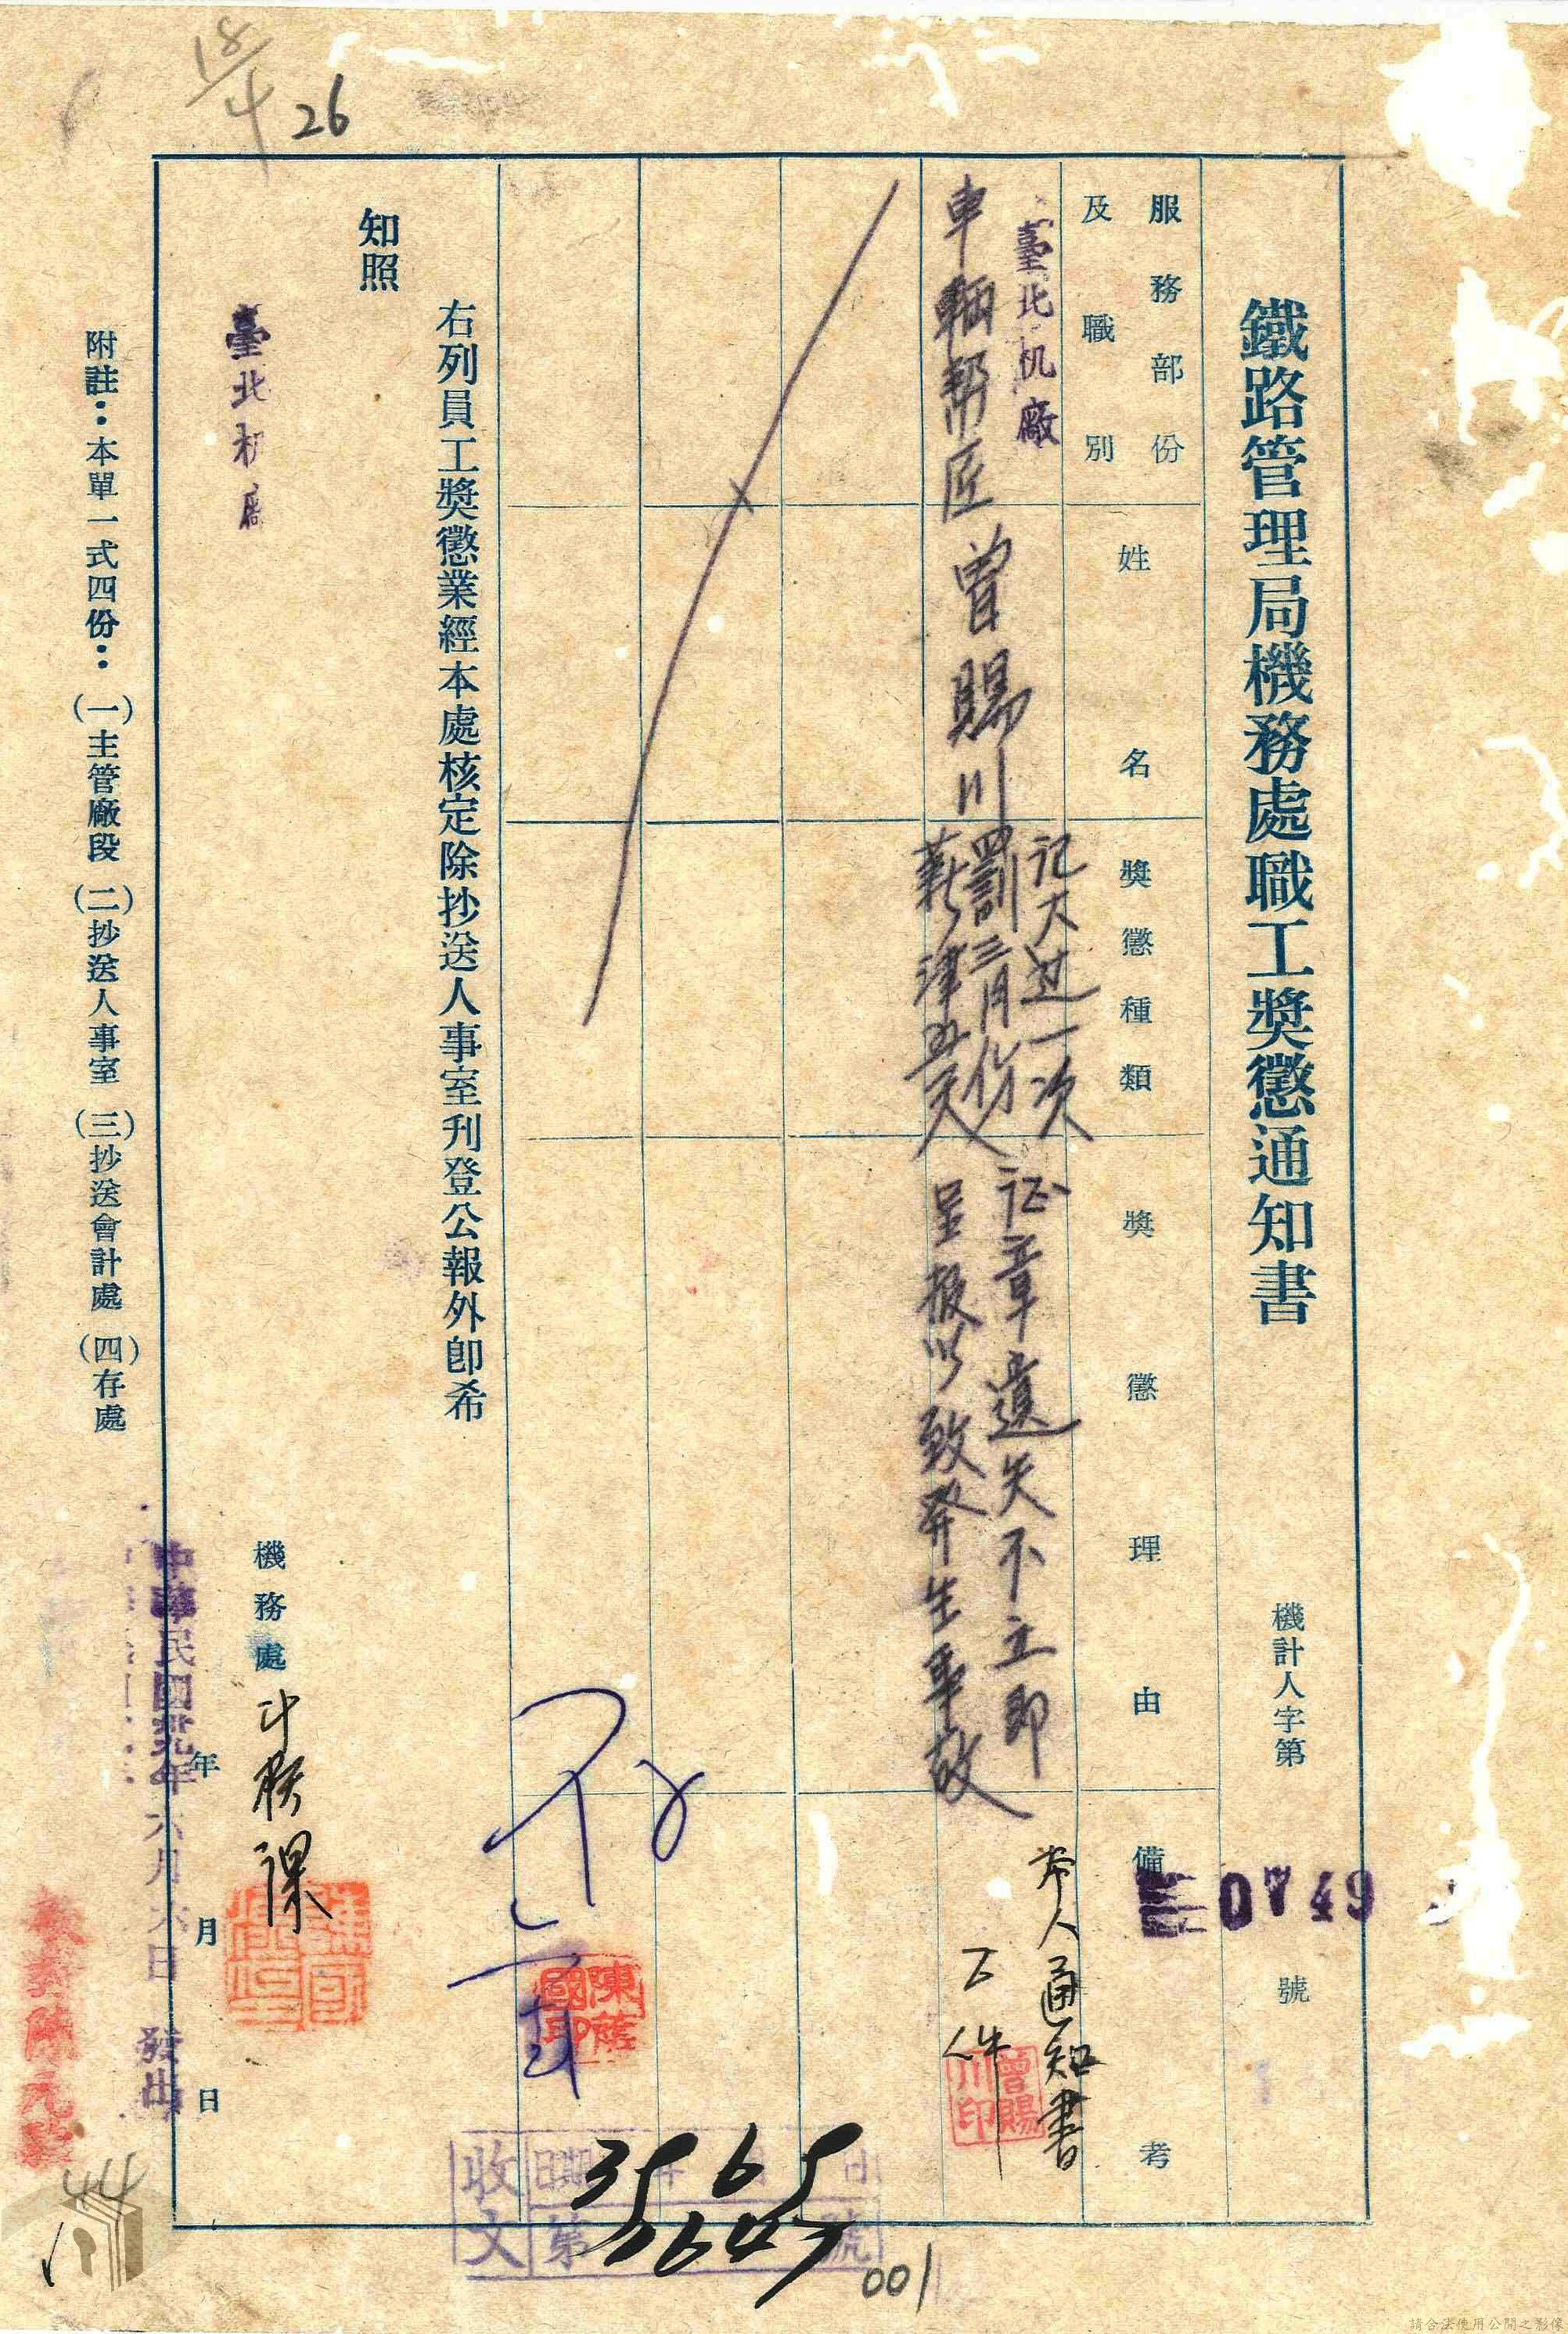 18/4
26
鐵路管理局機務處職工獎懲通知書
機計人字第
0749
號
服務部份
及職別
姓名
獎懲種類
獎懲理由
備考
臺北机廠
車輛幫匠
曾賜川
記大过一次
罰三月份
薪津五天
证章遺失不立即
呈报以致發生事故
本人通知書
曾賜川印
右列員工獎懲業經本處核定除抄送人事室刊登公報外卽希
知照
臺北机廠
機務處
課
年月日
中華民國卅九年六月六日發出
附註：本單一式四份：(一)主管廠段(二)抄送人事室(三)抄送會計處(四)存處
收文
日期
年月日
第
號
3565
001
44
請合法使用公開之影像